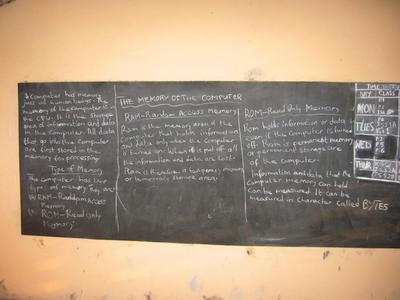 A Computer has memory
just as human beings. The
memory of the computer is in
the CPU. It is the storage
area of information and data
in the computer. All data
that go into the computer
are first stored in the
memory for processing.
Type of Memory
The computer has two
types of memory. They are
RAM - Random Access
Memory
ROM - Read Only
Memory
THE MEMORY OF THE COMPUTER
RAM - Random Access Memory
Ram is the memory area of the
computer that holds information
and data only when the computer
is turned on. When it is put off all
the information and data are lost.
Ram is therefore a temporary memory
or temporary storage area.
ROM - Read Only Memory
Rom holds information or data
even if the computer is turned
off. Rom is permanent memory
or permanent storage area
of the computer.
Information and data that the
computer memory can hold
can be measured. It can be
measured in character called BYTES
TIME
DAY CLASS
MON
TUES
WED
THUR